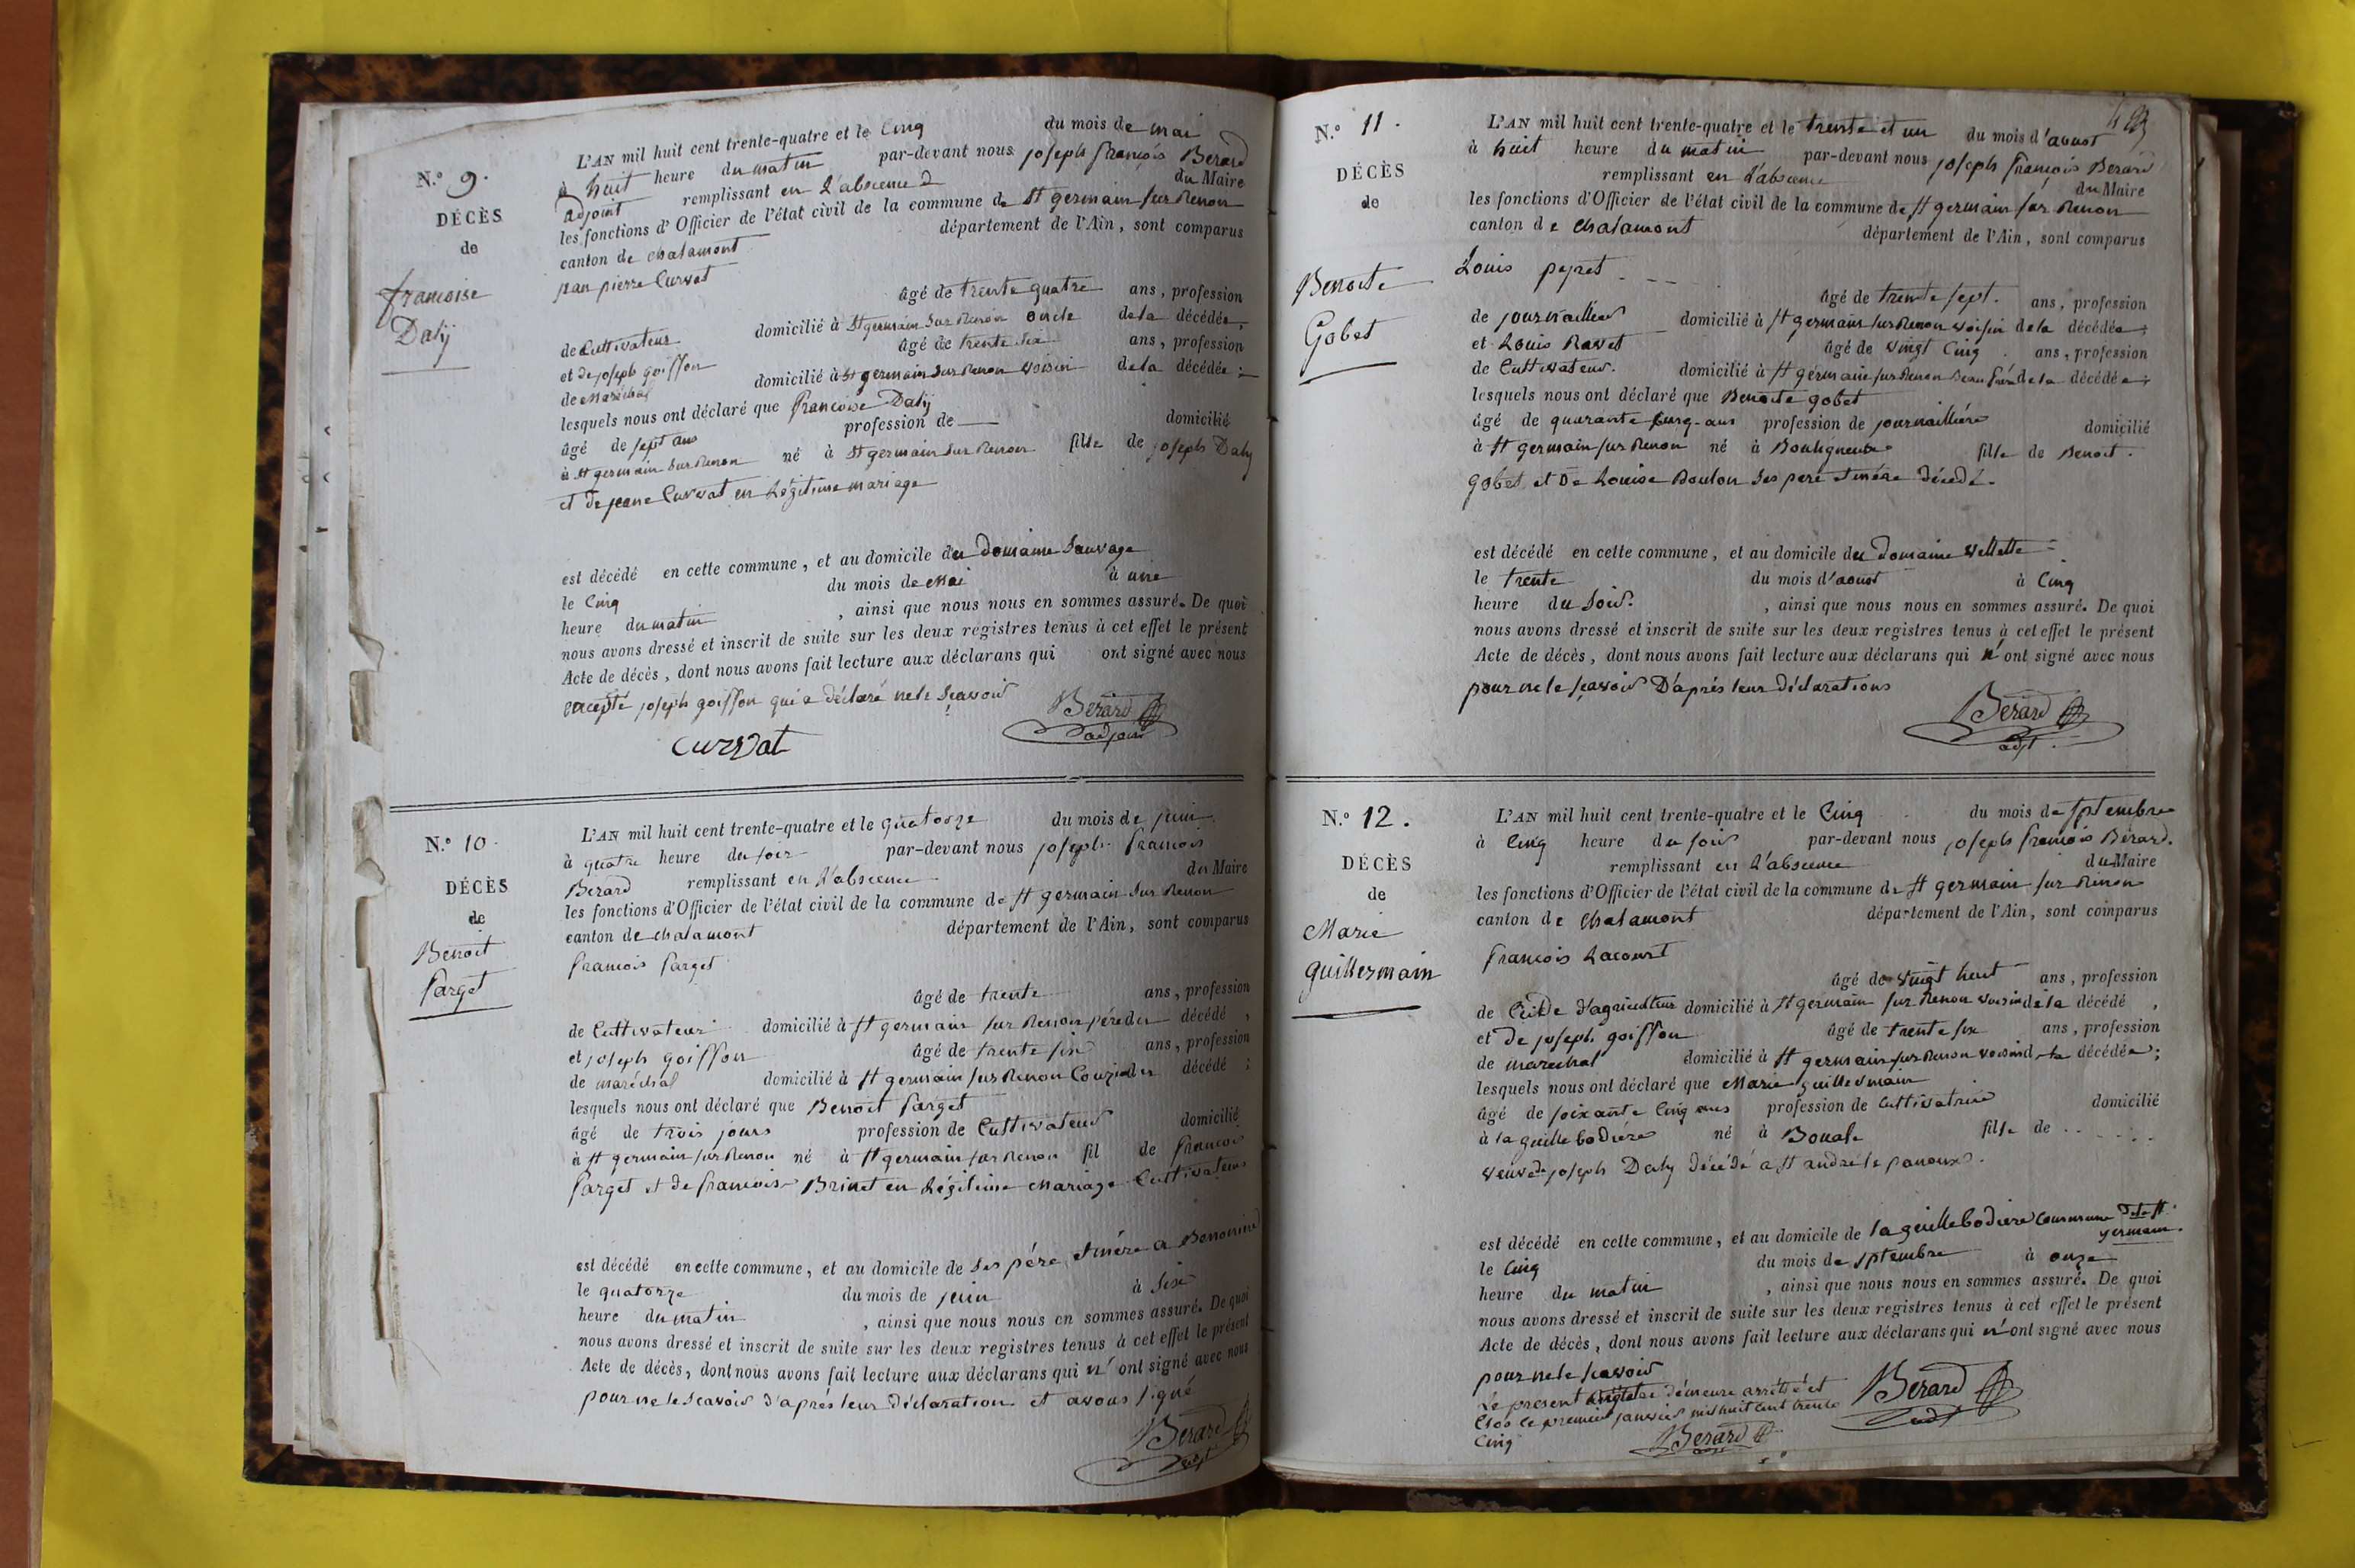 N.º 9.
DÉCÈS
de
francoise
Daly
L'AN mil huit cent trente-quatre et le Cinq du mois de mai
à huit heure du matin par-devant nous joseph françois Berard
adjoint remplissant en l'absence d du Maire
les fonctions d'Officier de l'état civil de la commune de St germain sur Renon
canton de chalamont département de l'Ain, sont comparus
jean pierre Curvat
âgé de trente quatre ans, profession
de Cultivateur domicilié à St germain sur Renon oncle de la décédée,
et de joseph goiffon âgé de trente six ans, profession
de Maréchal domicilié à St germain sur Renon voisin de la décédée;
lesquels nous ont déclaré que francoise Daly
âgé de sept ans profession de — domicilié
à St germain sur Renon né à St germain sur Renon fille de joseph Daly
et de jeane Curvat en légitime mariage
est décédé en cette commune, et au domicile du Domaine Sauvage
le Cinq du mois de Mai à une
heure du matin, ainsi que nous nous en sommes assuré. De quoi
nous avons dressé et inscrit de suite sur les deux registres tenus à cet effet le présent
Acte de décès, dont nous avons fait lecture aux déclarans qui ont signé avec nous
excepté joseph goiffon qui a déclaré ne le scavoir
Berard
adjoint
Curvat
N.º 10.
DÉCÈS
de
Benoit
farget
L'AN mil huit cent trente-quatre et le quatorze du mois de juin
à quatre heure du soir par-devant nous joseph francois
Berard remplissant en l'absence du Maire
les fonctions d'Officier de l'état civil de la commune de St germain sur Renon
canton de chalamont département de l'Ain, sont comparus
francois farget
âgé de trente ans, profession
de Cultivateur domicilié à St germain sur Renon père du décédé,
et joseph goiffon âgé de trente six ans, profession
de maréchal domicilié à St germain sur Renon Couzin du décédé;
lesquels nous ont déclaré que Benoit farget
âgé de trois jours profession de Cultivateur domicilié
à St germain sur Renon né à St germain sur Renon fil de francois
farget et de francoise Brinet en légitime mariage Cultivateurs
est décédé en cette commune, et au domicile de ses père et mère a
le quatorze du mois de juin à six
heure du matin, ainsi que nous nous en sommes assuré. De quoi
nous avons dressé et inscrit de suite sur les deux registres tenus à cet effet le présent
Acte de décès, dont nous avons fait lecture aux déclarans qui n'ont signé avec nous
pour ne le scavoir d'après leur déclaration et avons signé
Berard
adjt
N.º 11.
DÉCÈS
de
Benoite
Gobet
L'AN mil huit cent trente-quatre et le trente et un du mois d'aoust
à huit heure du matin par-devant nous joseph françois Berard
remplissant en l'absence du Maire
les fonctions d'Officier de l'état civil de la commune de St germain sur Renon
canton de chalamont département de l'Ain, sont comparus
Louis peyret
âgé de trente sept ans, profession
de journaillier domicilié à St germain sur Renon voisin de la décédée;
et Louis Ravet âgé de vingt Cinq ans, profession
de Cultivateur domicilié à St germain sur Renon Beau frère de la décédée;
lesquels nous ont déclaré que Benoite gobet
âgé de quarante Cinq ans profession de journaillière domicilié
à St germain sur Renon né à Bouligneux fille de Benoit
gobet et De Louise Boulon ses père et mère décédé.
est décédé en cette commune, et au domicile du Domaine Vellette
le trente du mois d'aoust à Cinq
heure du soir, ainsi que nous nous en sommes assuré. De quoi
nous avons dressé et inscrit de suite sur les deux registres tenus à cet effet le présent
Acte de décès, dont nous avons fait lecture aux déclarans qui n'ont signé avec nous
pour ne le scavoir D'après leur déclarations
Berard
adjt
N.º 12.
DÉCÈS
de
Marie
guillermain
L'AN mil huit cent trente-quatre et le Cinq du mois de Sptembre
à Cinq heure du soir par-devant nous joseph francois Bérard.
remplissant en l'absence du Maire
les fonctions d'Officier de l'état civil de la commune de St germain sur Renon
canton de chalamont département de l'Ain, sont comparus
francois Lacourt
âgé de vingt huit ans, profession
de d'agriculteur domicilié à St germain sur Renon voisin de la décédé,
et de joseph goiffon âgé de trente six ans, profession
de marechal domicilié à St germain sur Renon voisin de la décédée;
lesquels nous ont déclaré que Marie guillermain
âgé de soixante Cinq ans profession de Cultivatrice domicilié
à la guillebodière né à Bouale fille de
veuve de joseph Daly décédé a St andré le panoux.
est décédé en cette commune, et au domicile de la guillebodiere commune de St
germain.
le Cinq du mois de Sptembre à onze
heure du matin, ainsi que nous nous en sommes assuré. De quoi
nous avons dressé et inscrit de suite sur les deux registres tenus à cet effet le présent
Acte de décès, dont nous avons fait lecture aux déclarans qui n'ont signé avec nous
pour ne le scavoir
Le present demeure arretté et
Clos le premier janvier mil huit cent trente
Cinq
Berard
adjt
Berard